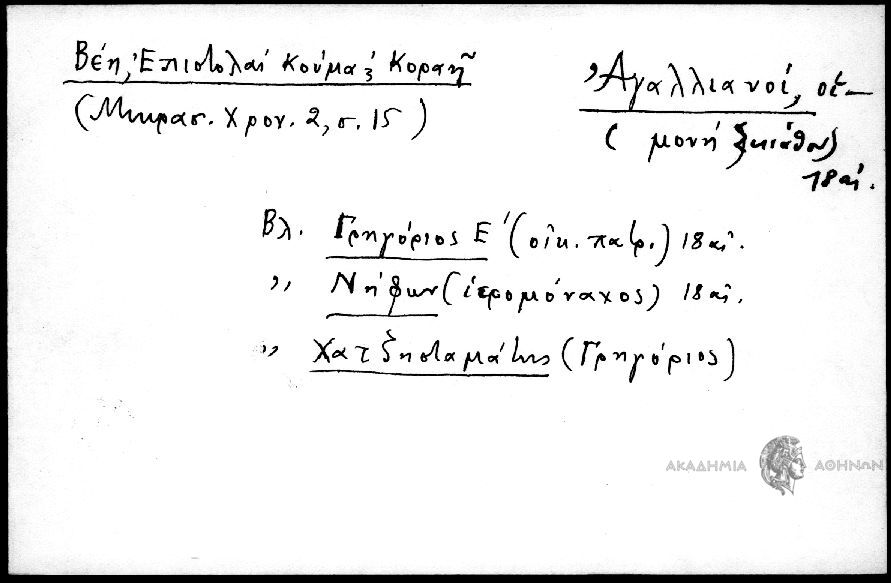 Βέη, Ἐπιστολαί Κούμα & Κοραῆ
(Μικρασ. Χρον. 2, σ. 15)
Ἀγαλλιανοί, οἱ—
(μονή Σκιάθου)
18 αἰ.
Βλ. Γρηγόριος Ε΄ (οἰκ. πατρ.) 18 αἰ.
,, Νήφων (ἱερομόναχος) 18 αἰ.
,, Χατζησταμάτης (Γρηγόριος)
ΑΚΑΔΗΜΙΑ ΑΘΗΝΩΝ